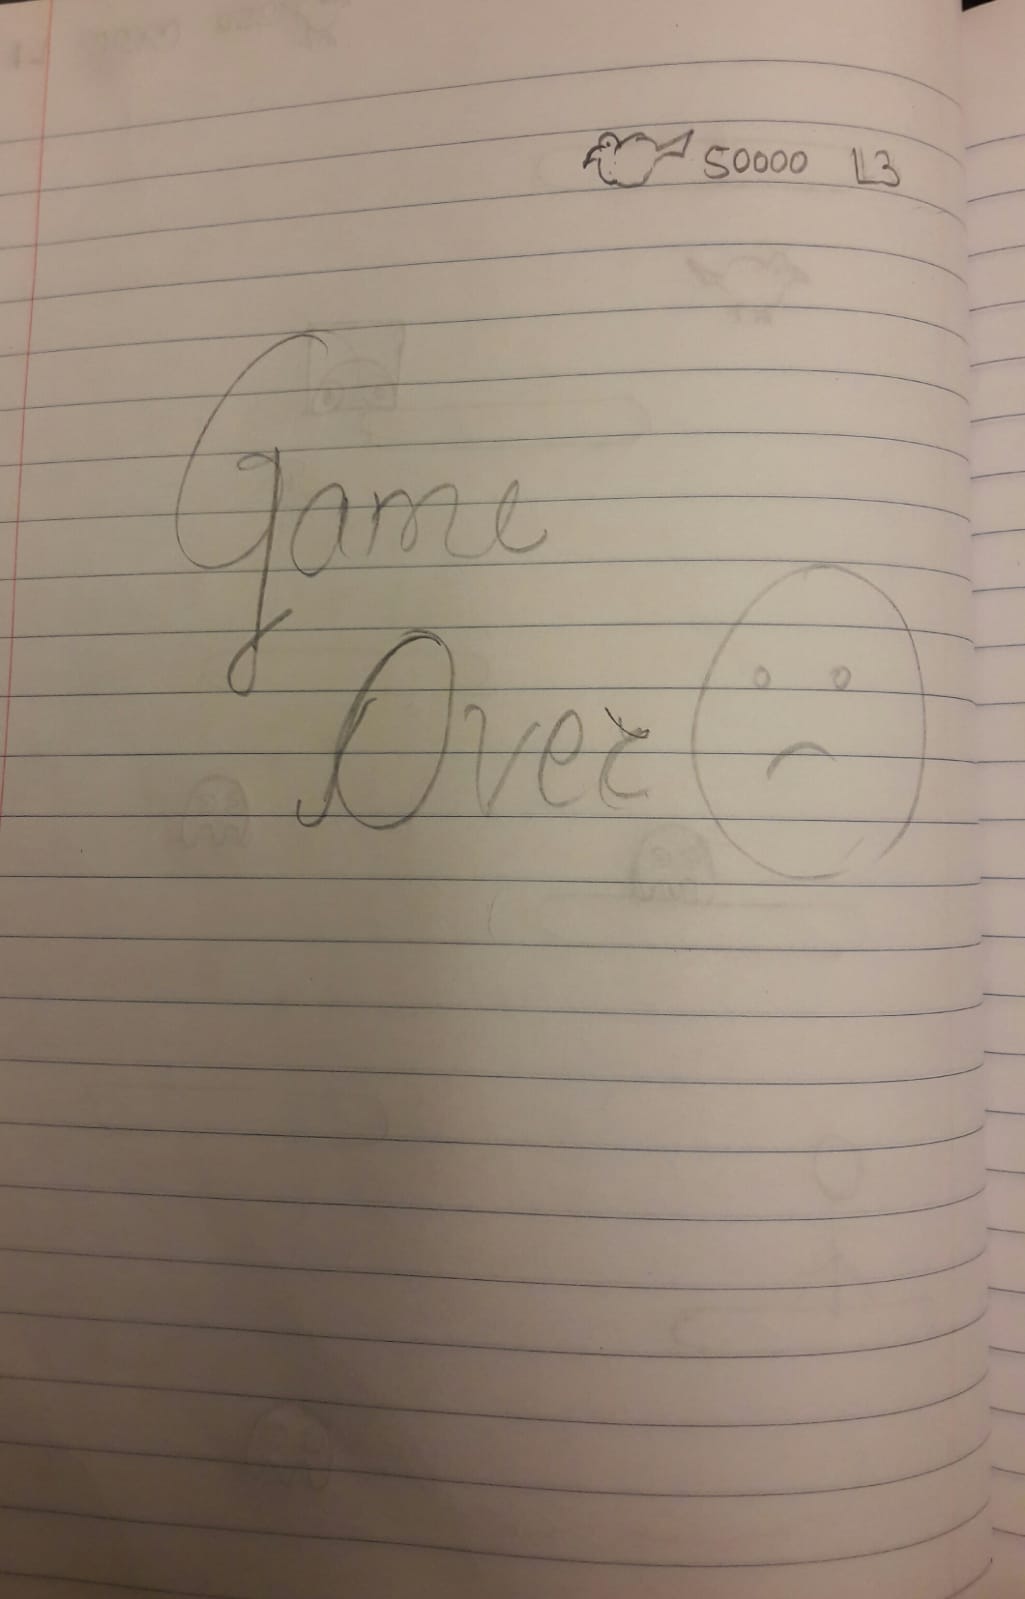 50000 L3
Game
Over